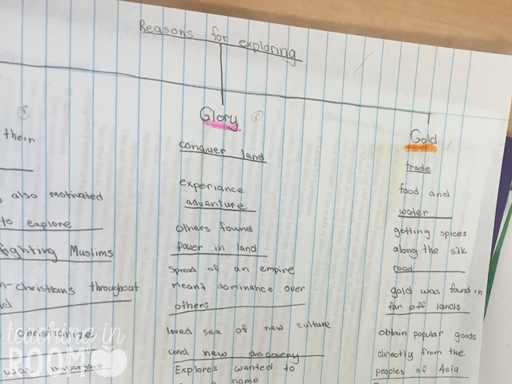 Reasons for exploring
their
also motivated
to explore
fighting Muslims
n-christians throughout
Glory
conquer land
experiance
advanture
others found
power in land
spread of an empire
meant dominance over
others
loved sea of new culture
and new discovery
Explores wanted to
name
Gold
trade
food and
water
getting spices
along the silk
road
gold was found in
far off lands
obtain popular goods
directly from the
peoples of Asia
teaching in
ROOM